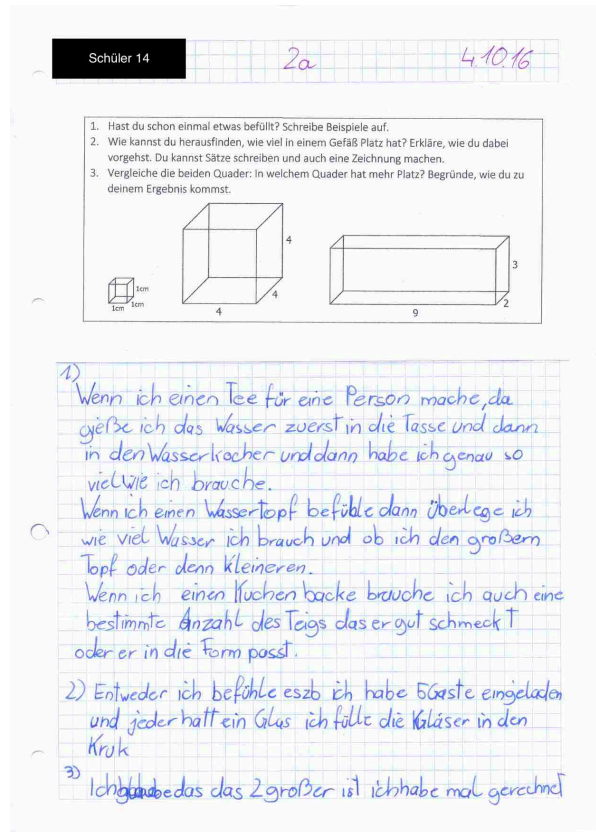 Schüler 14
2a
4.10.16
1. Hast du schon einmal etwas befüllt? Schreibe Beispiele auf.
2. Wie kannst du herausfinden, wie viel in einem Gefäß Platz hat? Erkläre, wie du dabei
vorgehst. Du kannst Sätze schreiben und auch eine Zeichnung machen.
3. Vergleiche die beiden Quader: In welchem Quader hat mehr Platz? Begründe, wie du zu
deinem Ergebnis kommst.
1cm
1cm
1cm
4
4
4
3
2
9
1)
Wenn ich einen Tee für eine Person mache, da
gieße ich das Wasser zuerst in die Tasse und dann
in den Wasserkocher und dann habe ich genau so
viel wie ich brauche.
Wenn ich einen Wassertopf befühle dann Überlege ich
wie viel Wasser ich brauch und ob ich den großern
Topf oder denn Kleineren.
Wenn ich einen Kuchen backe brauche ich auch eine
bestimmte Anzahl des Teigs das er gut schmeckt
oder er in die Form passt.
2) Entweder ich befühle es zb ich habe 5 Gäste eingeladen
und jeder hatt ein Glas ich fülle die Gläser in den
Kruk
3)
Ich glaube das das 2 großer ist ich habe mal gerechnet